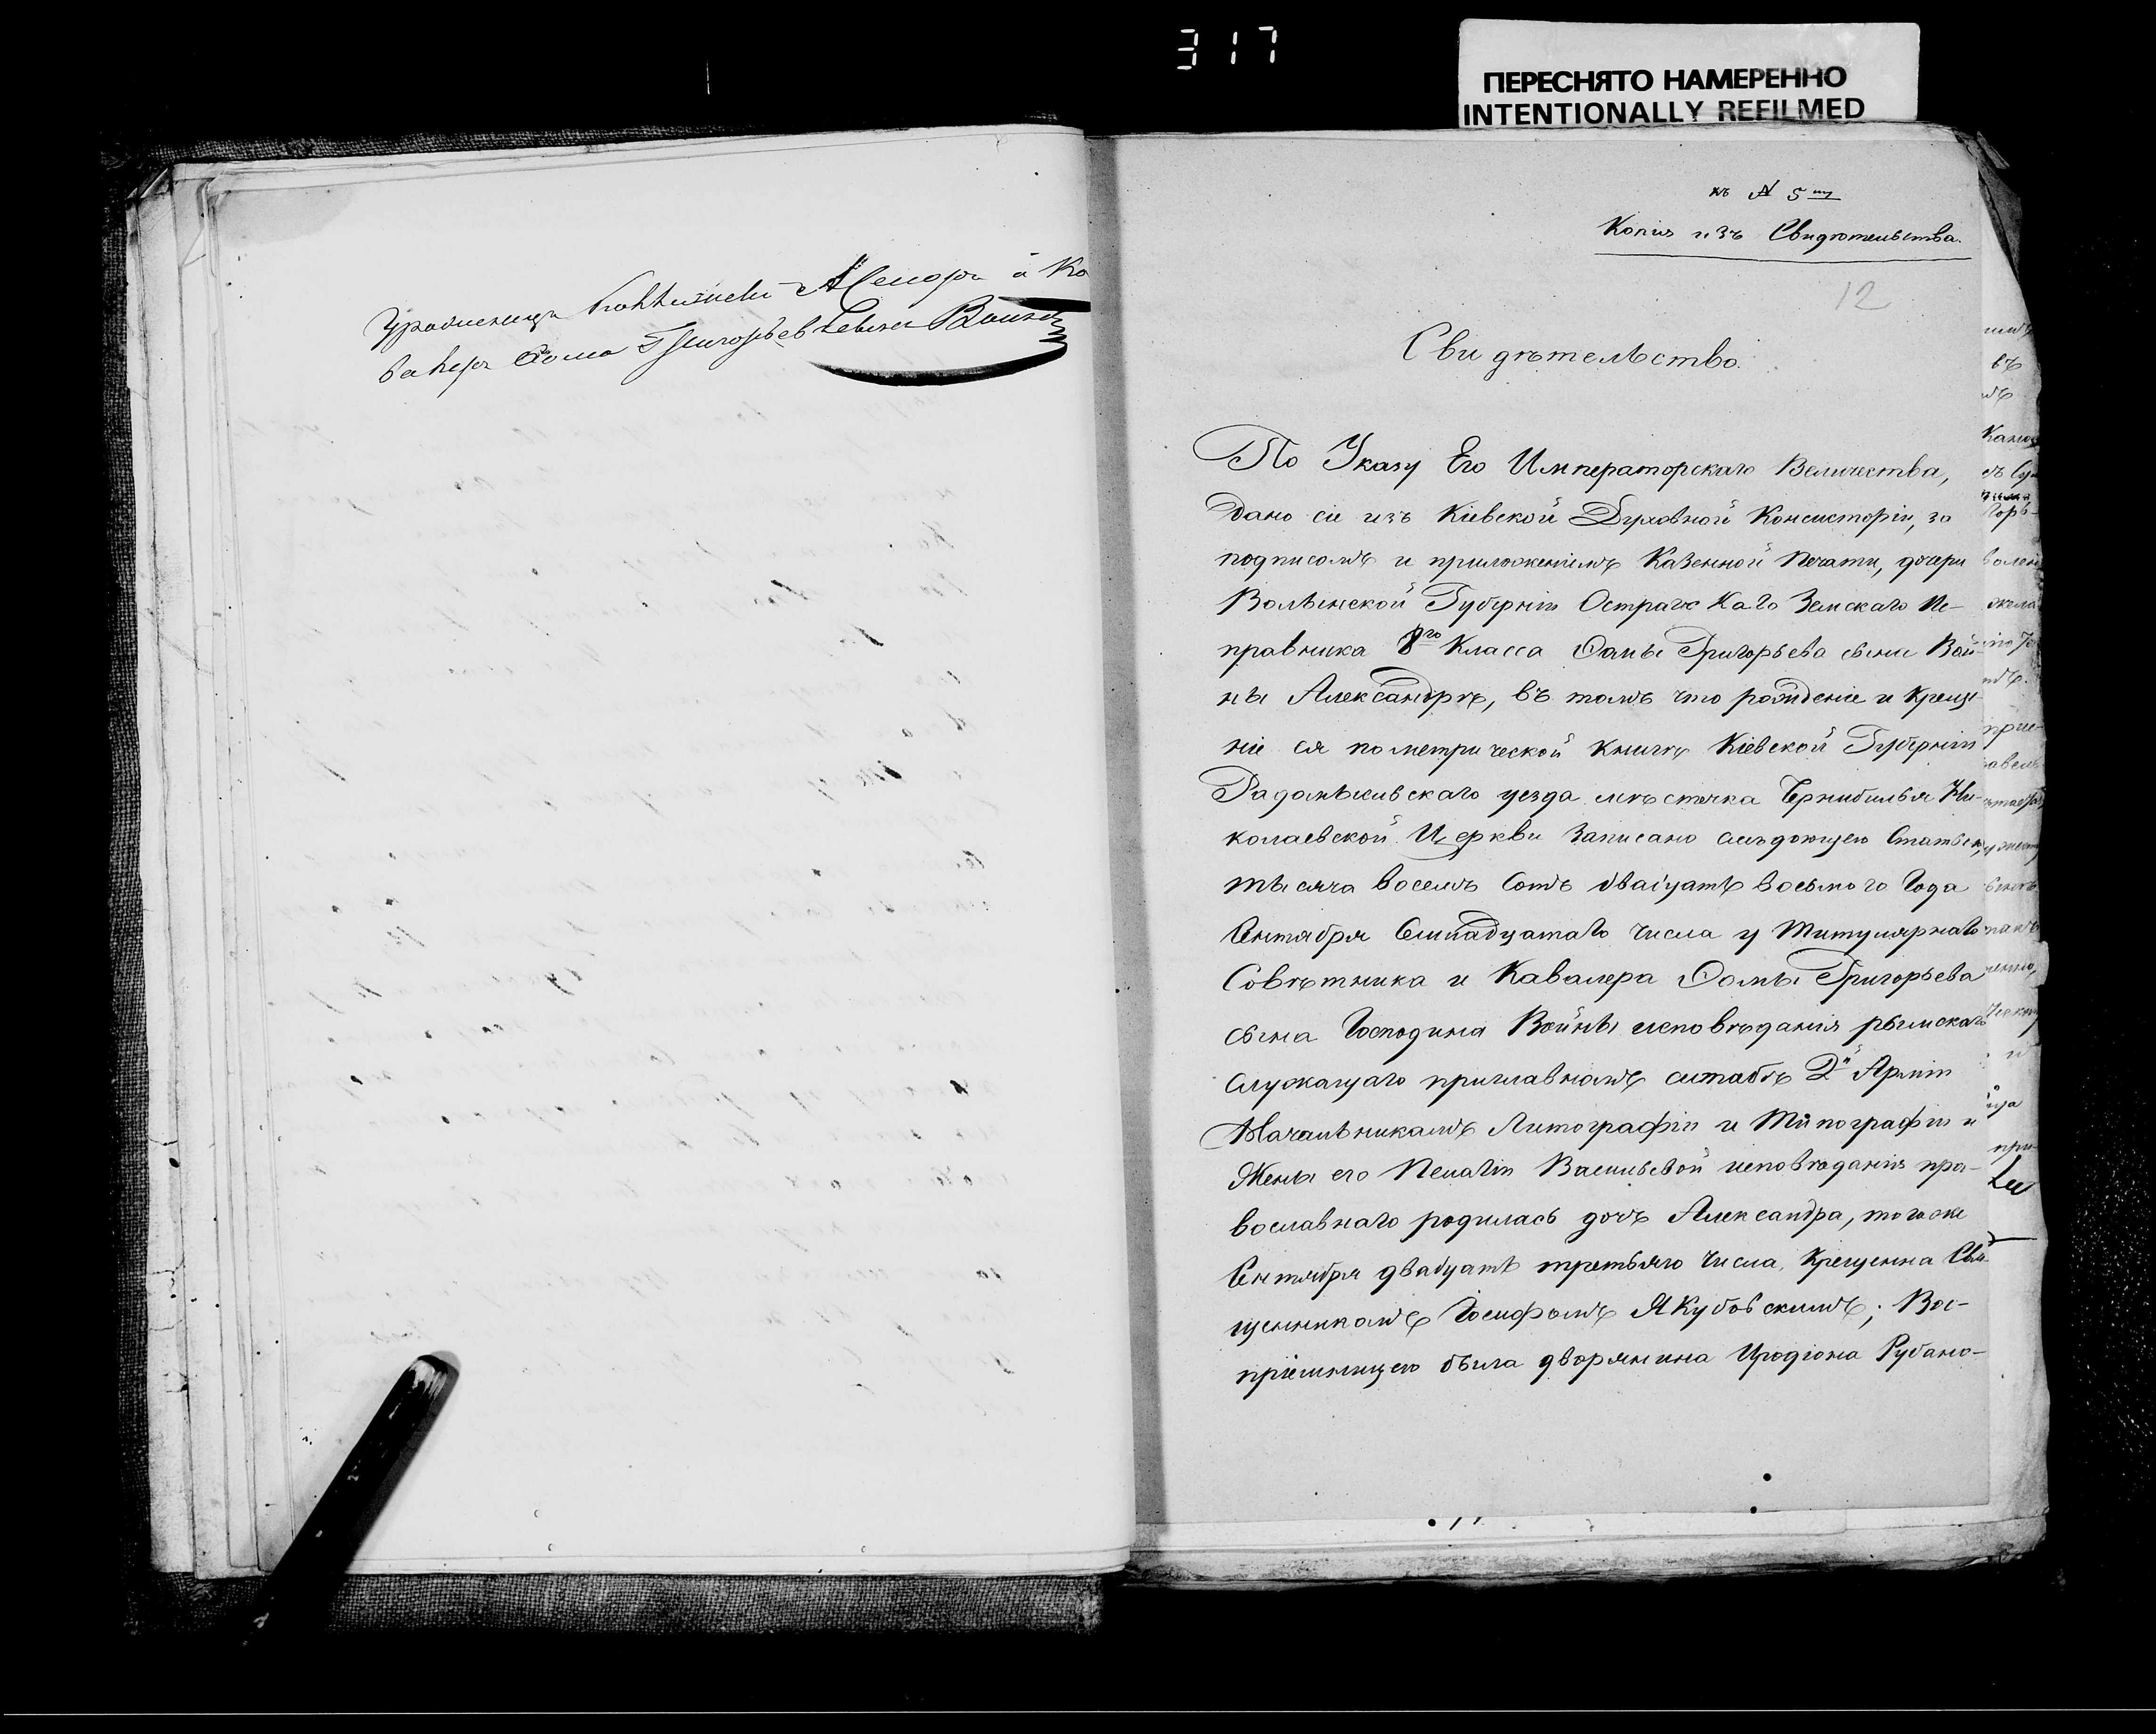 317
ПЕРЕСНЯТО НАМЕРЕННО
INTENTIONALLY REFILMED
къ № 5му
Копія изъ Свидѣтельства.
12
Ассесоръ и Ка
валеръ Ѳома Григорьевъ Война
Свидѣтельство.
По Указу Его Императорскаго Величества,
дано сіе изъ Кіевской Духовной Консисторіи, за
подписомъ и приложеніемъ Казенной Печати, дочери
Волынской Губерніи Острожскаго Земскаго Ис-
правника 8го Класса Ѳомы Григорьева сына Вой-
ны Александрѣ, въ томъ что рожденіе и Креще-
ніе ея по метрической книгѣ Кіевской Губерніи
Радомысльскаго уезда мѣстечка Чернобыля Ни-
колаевской Церкви записано слѣдующею Статьею,
тысяча восемъ Сотъ двадцать восьмого Года
Сентября Семнадцатаго числа у Титулярнаго
Совѣтника и Кавалера Ѳомы Григорьева
сына Господина Войны исповѣданія рымскаго
служащаго приглавномъ штабѣ 2й Арміи
Начальникомъ Литографіи и Типографіи и
Жены его Пелагіи Васильевой исповѣданія пра-
вославнаго родилась дочь Александра, тогоже
Сентября двадцать третьяго числа, Крещенна Свя-
щенникомъ Іосифомъ Якубовскимъ; Вос-
пріемницею была дворянина Иродіона Рубано-